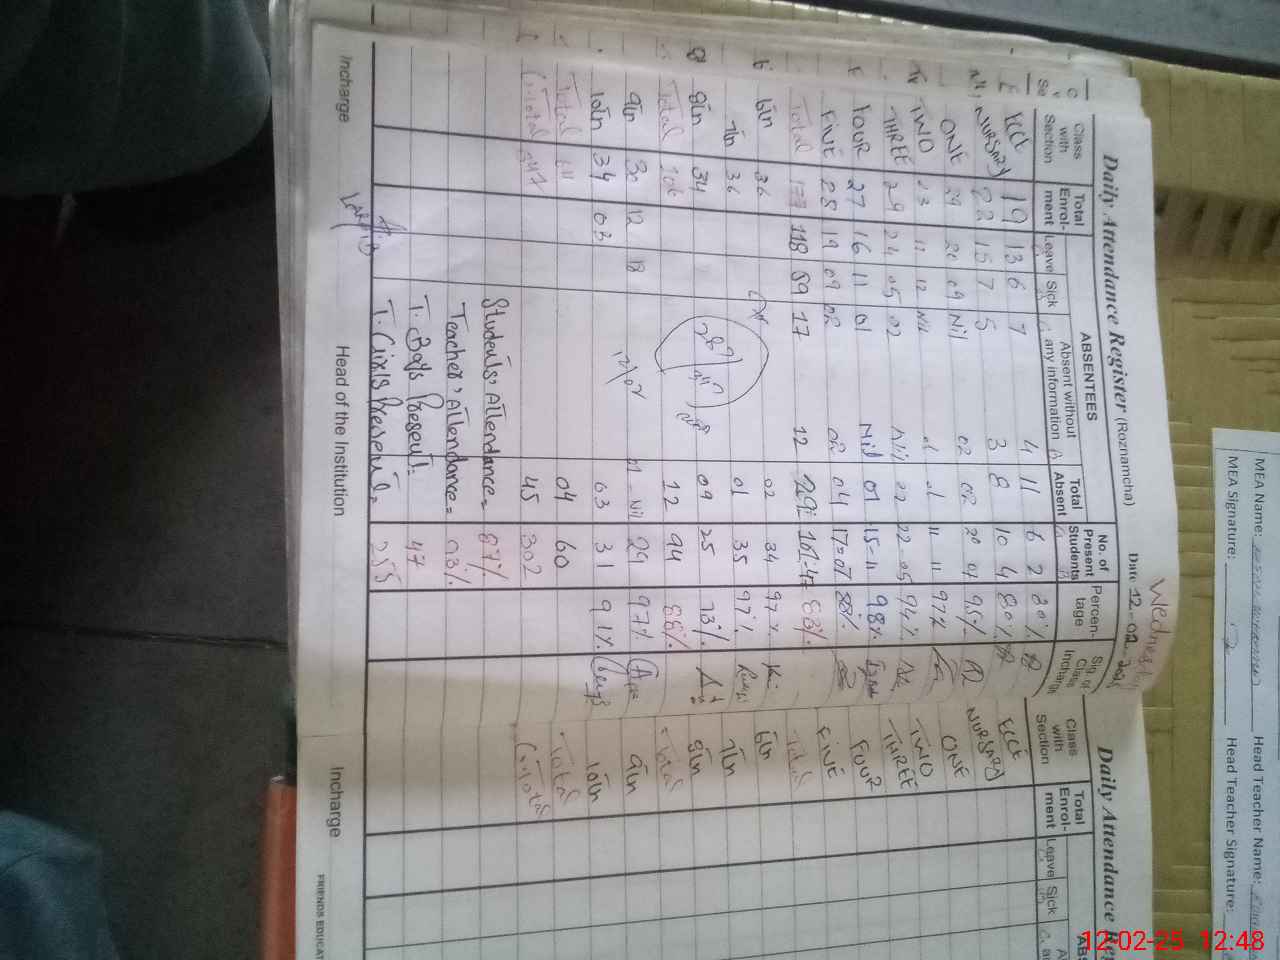 Wednesday
Daily Attendance Register (Roznamcha) Date 12-02-2025
Class with Section Total Enrol-ment ABSENTEES Leave Sick Absent without any information Total Absent No. of Present Students Percen-tage Sig. of Class Incharge
ECCE 19 13 6 7 4 11 6 2
NURSARY 22 15 7 5 3 8 10 4 80%
ONE 29 20 09 Nil 02 02 20 07 95%
TWO 23 11 12 Nil 01 01 11 11 97%
THREE 29 24 05 02 Nil 02 22-05 94%
FOUR 27 16 11 01 Nil 01 15-11 98%
FIVE 28 19 09 02 02 04 17=07 88%
Total 177 118 59 17 12 29 83%
6th 36 02 34 97%
7th 36 01 35 97%
8th 34 09 25 73%
Total 106 12 94 88%
9th 30 12 18 01 Nil 29 97%
10th 34 03 03 31 91%
Total 04 60
G.Total 347 45 302
Students, Attendance= 87%
Teacher, Attendance= 93%
T. Boys Present: 47
T. Girls Present= 255
Incharge Head of the Institution
Daily Attendance Re
Class with Section Total Enrol-ment Leave Sick
ECCE
NURSARY
ONE
TWO
THREE
FOUR
FIVE
Total
6th
7th
8th
Total
9th
10th
Total
G.Total
Incharge
FRIENDS EDUCAT
MEA Name: Head Teacher Name:
MEA Signature: Head Teacher Signature:
12-02-25 12:48